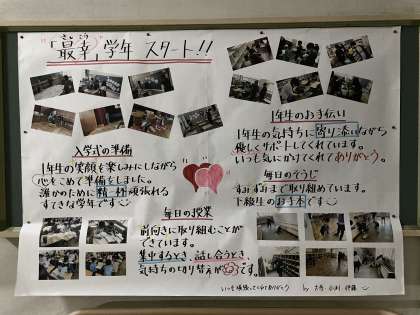 さいこう
「最幸」学年 スタート!!
入学式の準備
1年生の笑顔を楽しみにしながら
心をこめて準備をしました。
誰かのために精一杯頑張れる
すてきな学年です
1年生のお手伝い
1年生の気持ちに寄り添いながら
優しくサポートしてくれています。
いつも気にかけてくれてありがとう。
毎日のそうじ
すみずみまで取り組めています。
下級生のお手本です
毎日の授業
前向きに取り組むことが
できています。
集中するとき、話し合うとき、
気持ちの切り替えが◎です。
いつも頑張ってくれてありがとう
by